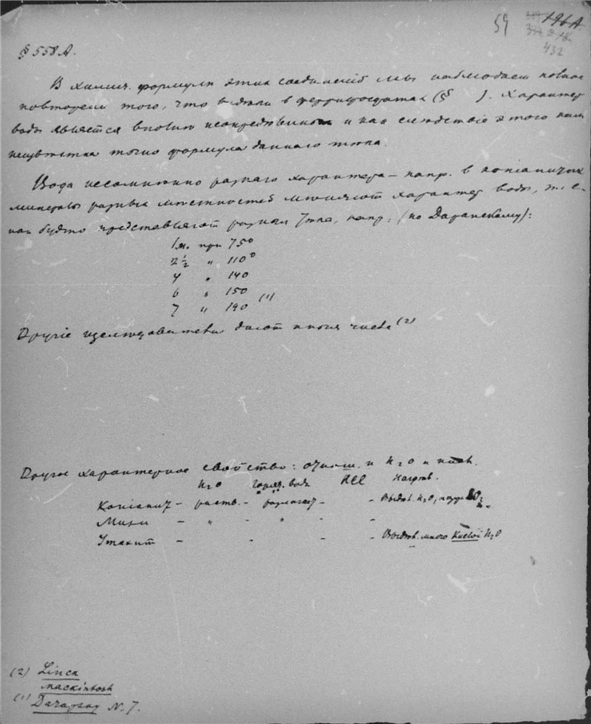 59 196А.
432
§ 558А.
В химич. формулах этих соединений мы наблюдаем новое
повторение того, что видели в ферритосульфатах (§ ). Характер
воды является вновь неопределенным и как следствие этого нам
неизвестна точно формула данного типа.
Вода несомненно разного характера – напр. в копіапитах
минералы разных местностей меняют характер воды, т. е.
как будто представляют разные типы, напр: (по Дарапскому):
1м. при 75°
2½ " 110°
4 " 140
6 " 150
7 " 190 (1)
Другіе изследователи дают иные числа (2)
Другое характерное свойство: отнош. к H2O и кисл.
H2O горяч. вода HCl Нагрев.
Копіапит – раств. – разлагает – – Выдел. H2O, потом SO3
– " – –
Утахит – – – – Выдел. много кислой H2O
(2) Linck
Mackintosh
(1) Darapsky N. J.